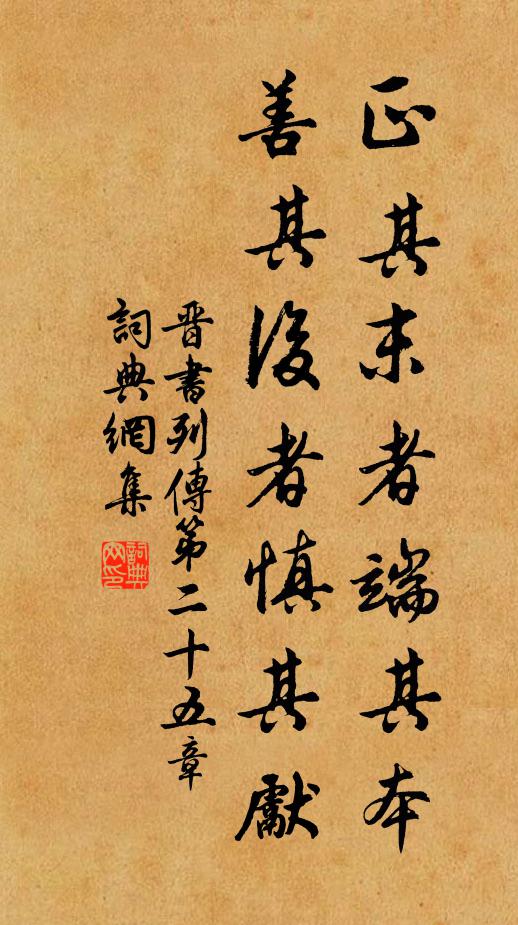 正其末者端其本
善其後者慎其獻
晋書列傳第二十五章
詞典網集
詞典网印